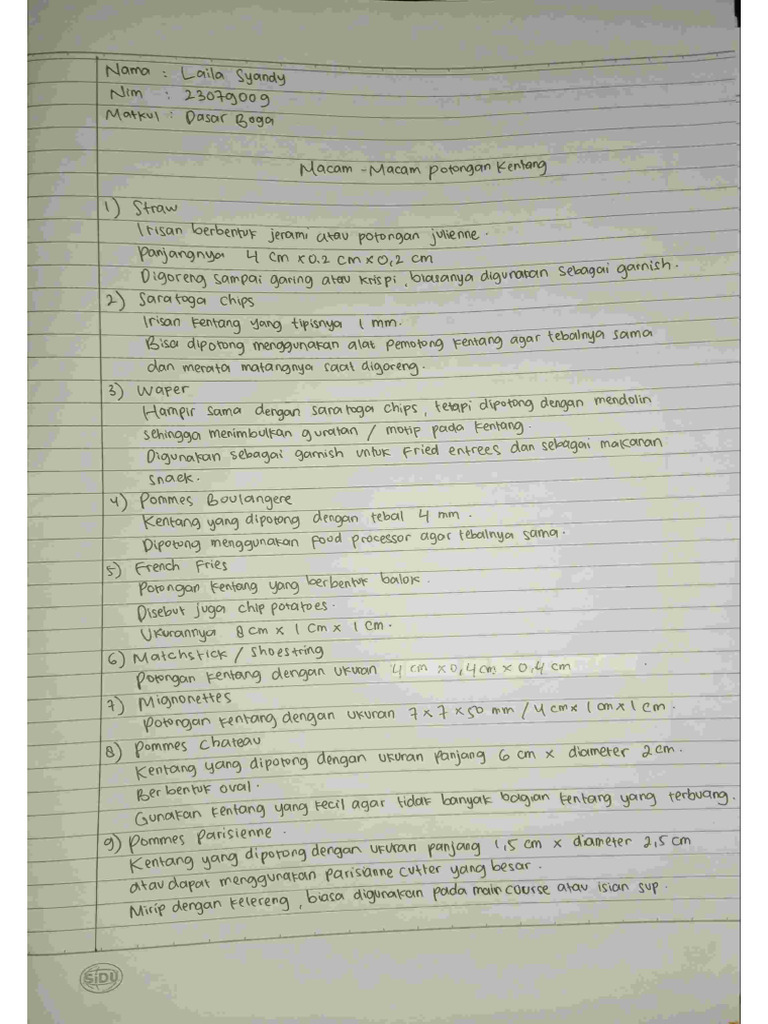 Nama : Laila Syandy
Nim : 23079009
Matkul : Dasar Boga
Macam - Macam Potongan Kentang
1) Straw
Irisan berbentuk jerami atau potongan julienne.
Panjangnya 4 cm x 0.2 cm x 0,2 cm
Digoreng sampai garing atau krispi, biasanya digunakan sebagai garnish.
2) Saratoga chips
Irisan kentang yang tipisnya 1 mm.
Bisa dipotong menggunakan alat pemotong kentang agar tebalnya sama
dan merata matangnya saat digoreng.
3) Waper
Hampir sama dengan saratoga chips, tetapi dipotong dengan mendolin
sehingga menimbulkan guratan / motip pada kentang.
Digunakan sebagai garnish untuk Fried entrees dan sebagai makanan
snack.
4) Pommes Boulangere
Kentang yang dipotong dengan tebal 4 mm.
Dipotong menggunakan food processor agar tebalnya sama.
5) French Fries
Potongan kentang yang berbentuk balok.
Disebut juga chip potatoes.
Ukurannya 8 cm x 1 cm x 1 cm.
6) Matchstick / Shoestring
Potongan kentang dengan ukuran 4 cm x 0,4 cm x 0.4 cm
7) Mignonettes
Potongan kentang dengan ukuran 7 x 7 x 50 mm / 4 cm x 1 cm x 1 cm.
8) Pommes Chateau
Kentang yang dipotong dengan ukuran panjang 6 cm x diameter 2 cm.
Berbentuk oval.
Gunakan kentang yang kecil agar tidak banyak bagian kentang yang terbuang.
9) Pommes Parisienne.
Kentang yang dipotong dengan ukuran panjang 1,5 cm x diameter 2,5 cm
atau dapat menggunakan parisianne cutter yang besar.
Mirip dengan kelereng, biasa digunakan pada main course atau isian sup.
SiDU